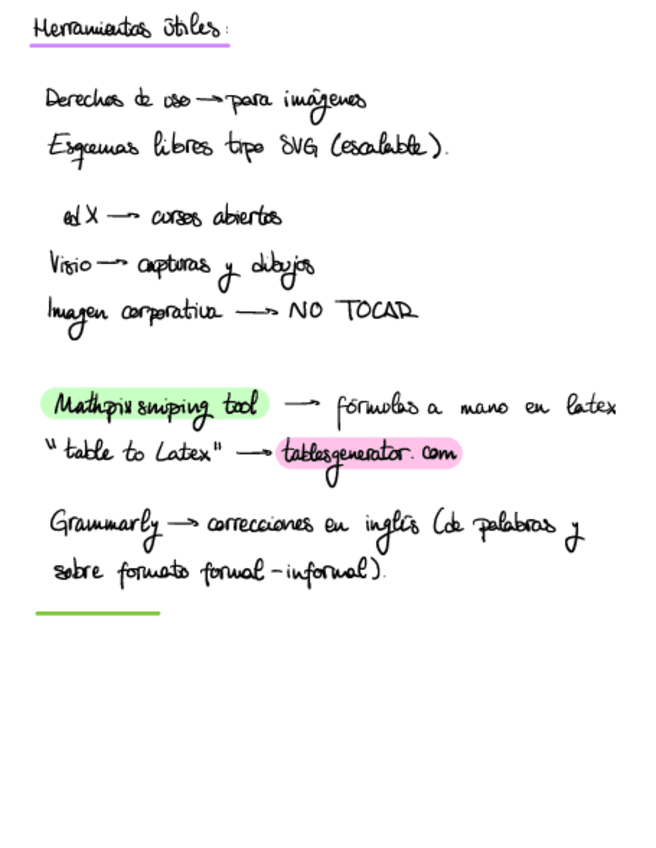 Herramientas útiles:
Derechos de uso → para imágenes
Esquemas libres tipo SVG (escalable).
edX → cursos abiertos
Visio → capturas y dibujos
Imagen corporativa → NO TOCAR
Mathpix sniping tool → fórmulas a mano en latex
"table to Latex" → tablesgenerator.com
Grammarly → correcciones en inglés (de palabras y
sobre formato formal-informal).